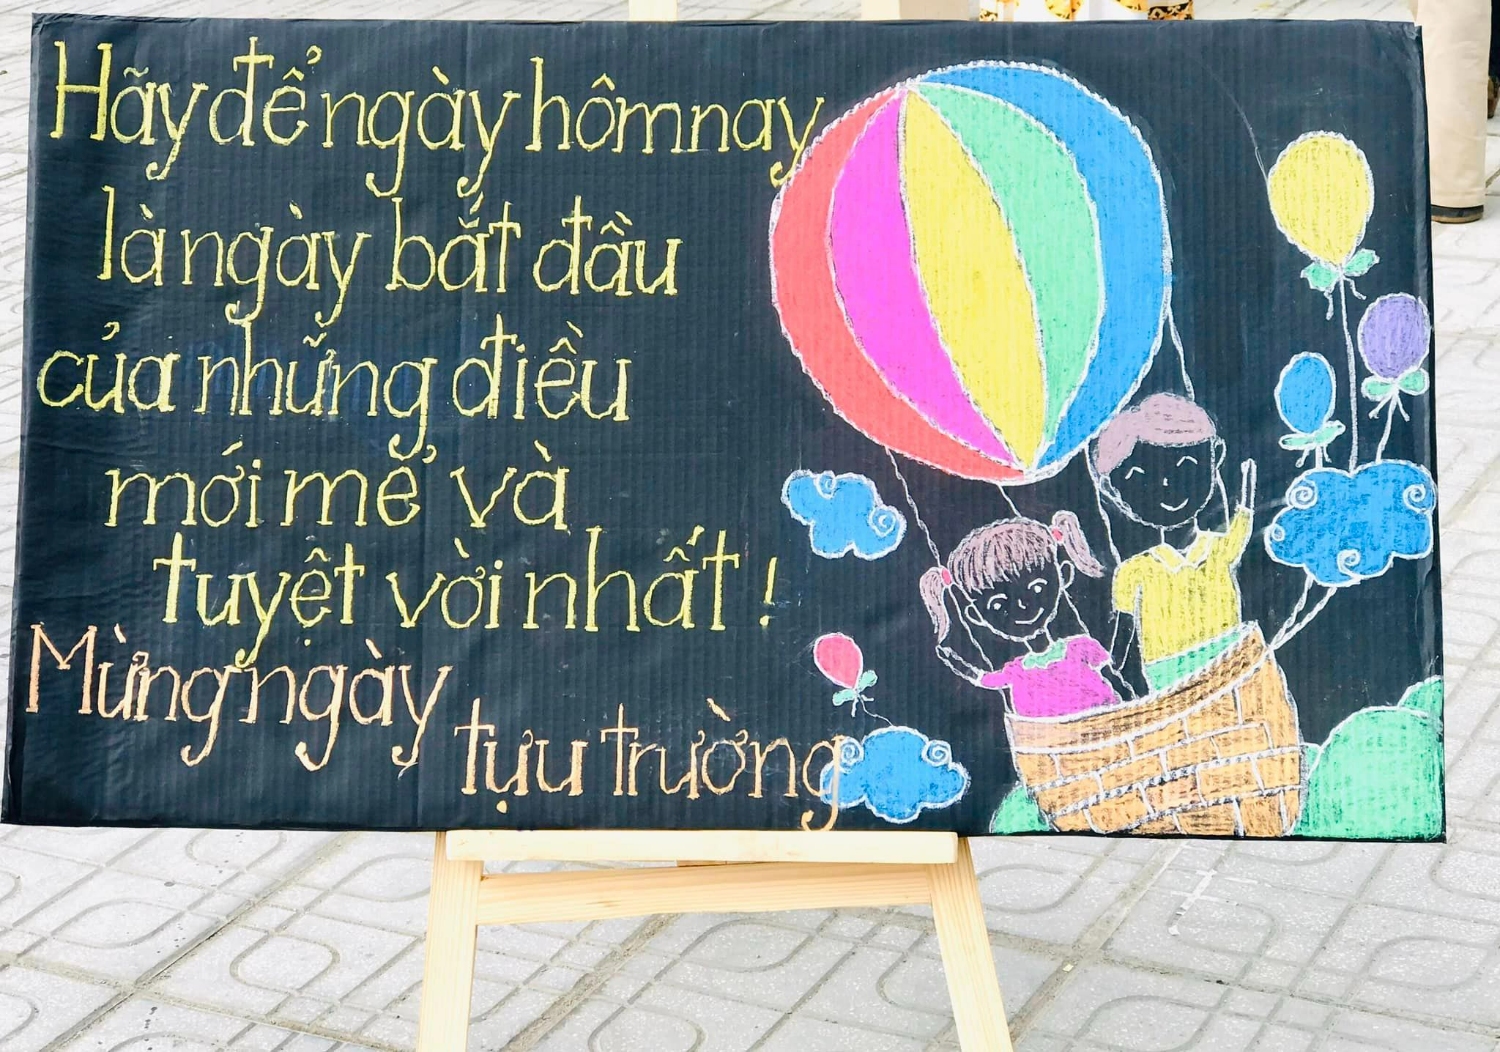 Hãy để ngày hôm nay
là ngày bắt đầu
của những điều
mới mẻ và
tuyệt vời nhất !
Mừng ngày
tựu trường